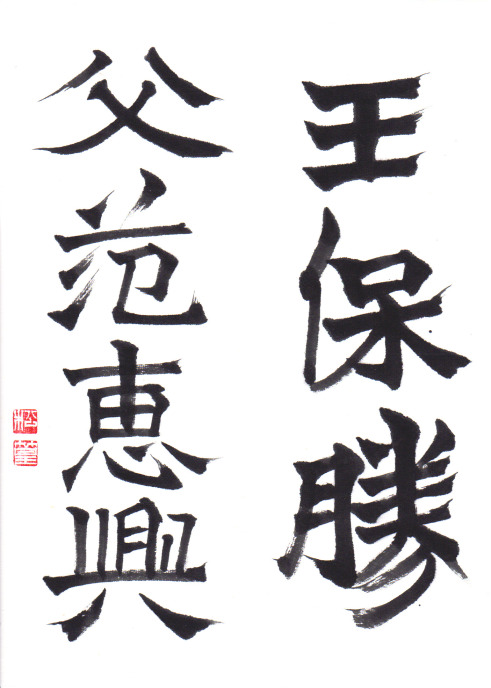 王保勝
父范恵興